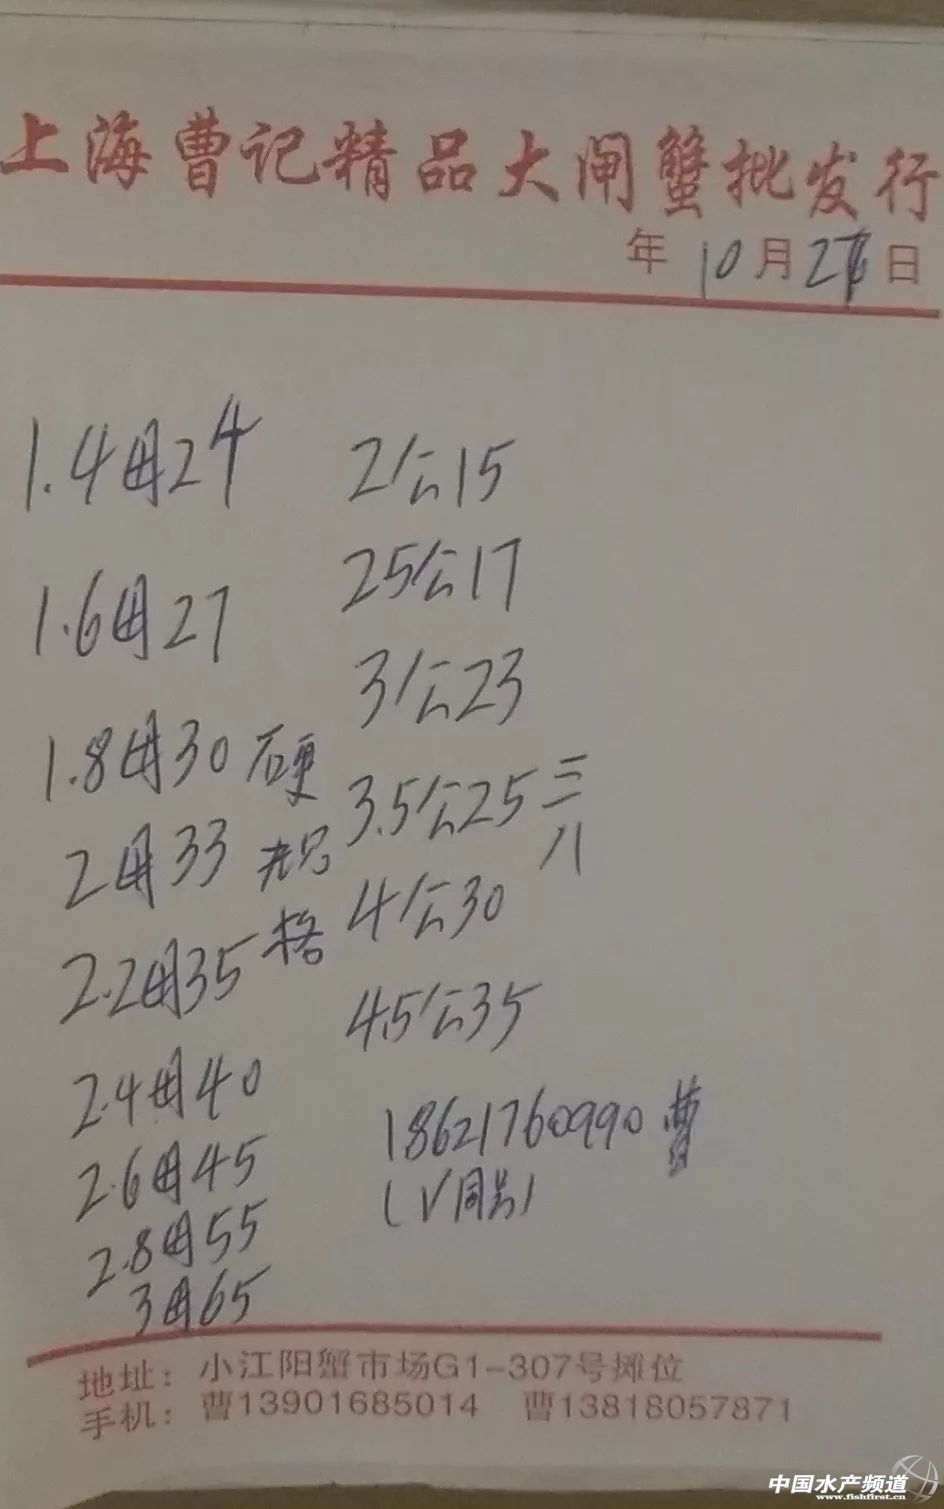 上海曹记精品大闸蟹批发行
年 10月 日
1.4母24
1.6母27
1.8母30 硬
2母33 规
2.2母35 格
2.4母40
2.6母45
2.8母55
3母65
2公15
25公17
3公23
3.5公25 三
八
4公30
4.5公35
18621760990 曹
(V同号)
地址：小江阳蟹市场G1-307号摊位
手机：曹13901685014 曹13818057871
中国水产频道
www.fishfirst.cn